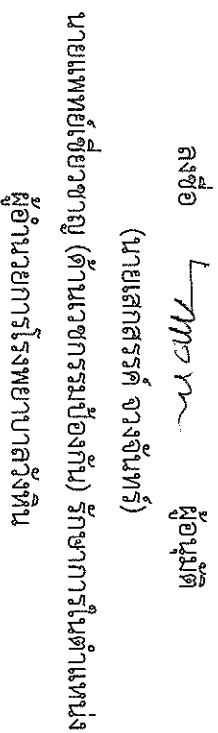 ลงชื่อ ผู้อนุมัติ
(นายเสกสรรค์ จวงจันทร์)
นายแพทย์เชี่ยวชาญ (ด้านเวชกรรมป้องกัน) รักษาการในตำแหน่ง
ผู้อำนวยการโรงพยาบาลวังหิน